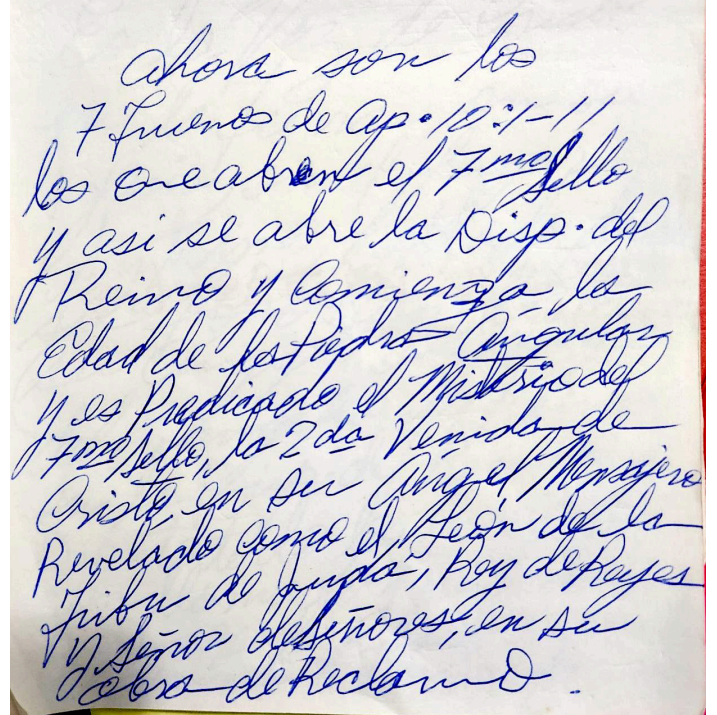 ahora son los
7 Truenos de Ap. 10:1-11
los que abren el 7mo Sello
y asi se abre la Disp. del
Reino y Comienza la
Edad de la Piedra Angular
y es Predicado el Misterio del
7mo Sello, la 2da Venida de
Cristo, en su Angel Mensajero
Revelado como el León de la
Tribu de Juda, Rey de Reyes
y Señor de Señores, en su
Obra de Reclamo.